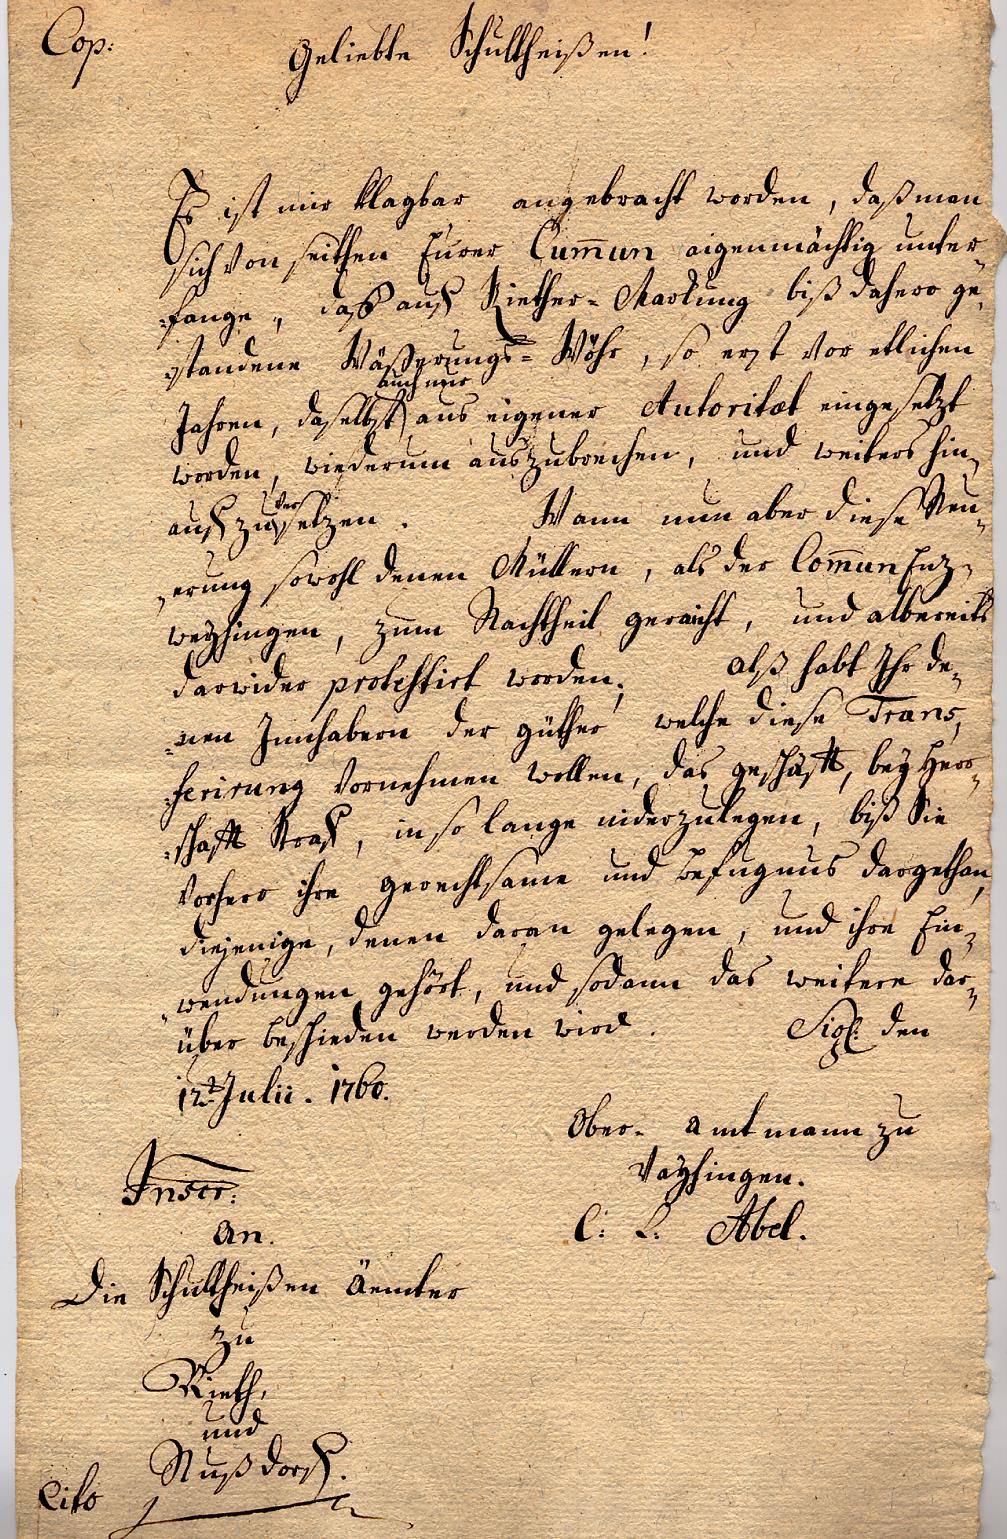 Cop:
Geliebte Schultheißen!
Es ist mir klagbar angebracht worden, daß man
sich von seithen Eurer Cum̄un aigenmächtig unter-
fange, das auf Riether-Markung biß dahero ge-
standene Wäßerungs-Wöhr, so erst vor etlichen
auch nur
Jahren, daselbst aus eigener Autoritæt eingesetzt
worden, wiederum auszubrechen, und weiters hin-
ver
auf zu setzen. Wann nun aber diese Neu-
erung sowohl denen Müllern, als der Com̄un Enz-
weyhingen, zum Nachtheil geraicht, und albereits
darwider protestirt worden; Alß habt Ihr de-
nen Innhabern der güther welche diese Trans-
ferirung vornehmen wollen, das geschäfft, bey Herr-
schafft Straf, in so lange niderzulegen, biß Sie
vorhero ihre gerechtsame und befugnus dargethan,
diejenige, denen daran gelegen, und ihre Ein-
wendungen gehört, und sodann das weitere dar-
über beschieden werden wird. Sigl: den
12t Julii. 1760.
Ober-Amtmann zu
Vayhingen.
C: L: Abel.
Inscr:
An.
Die Schultheißen Äemter
zu
Rieth,
und
Nußdorf.
Cito